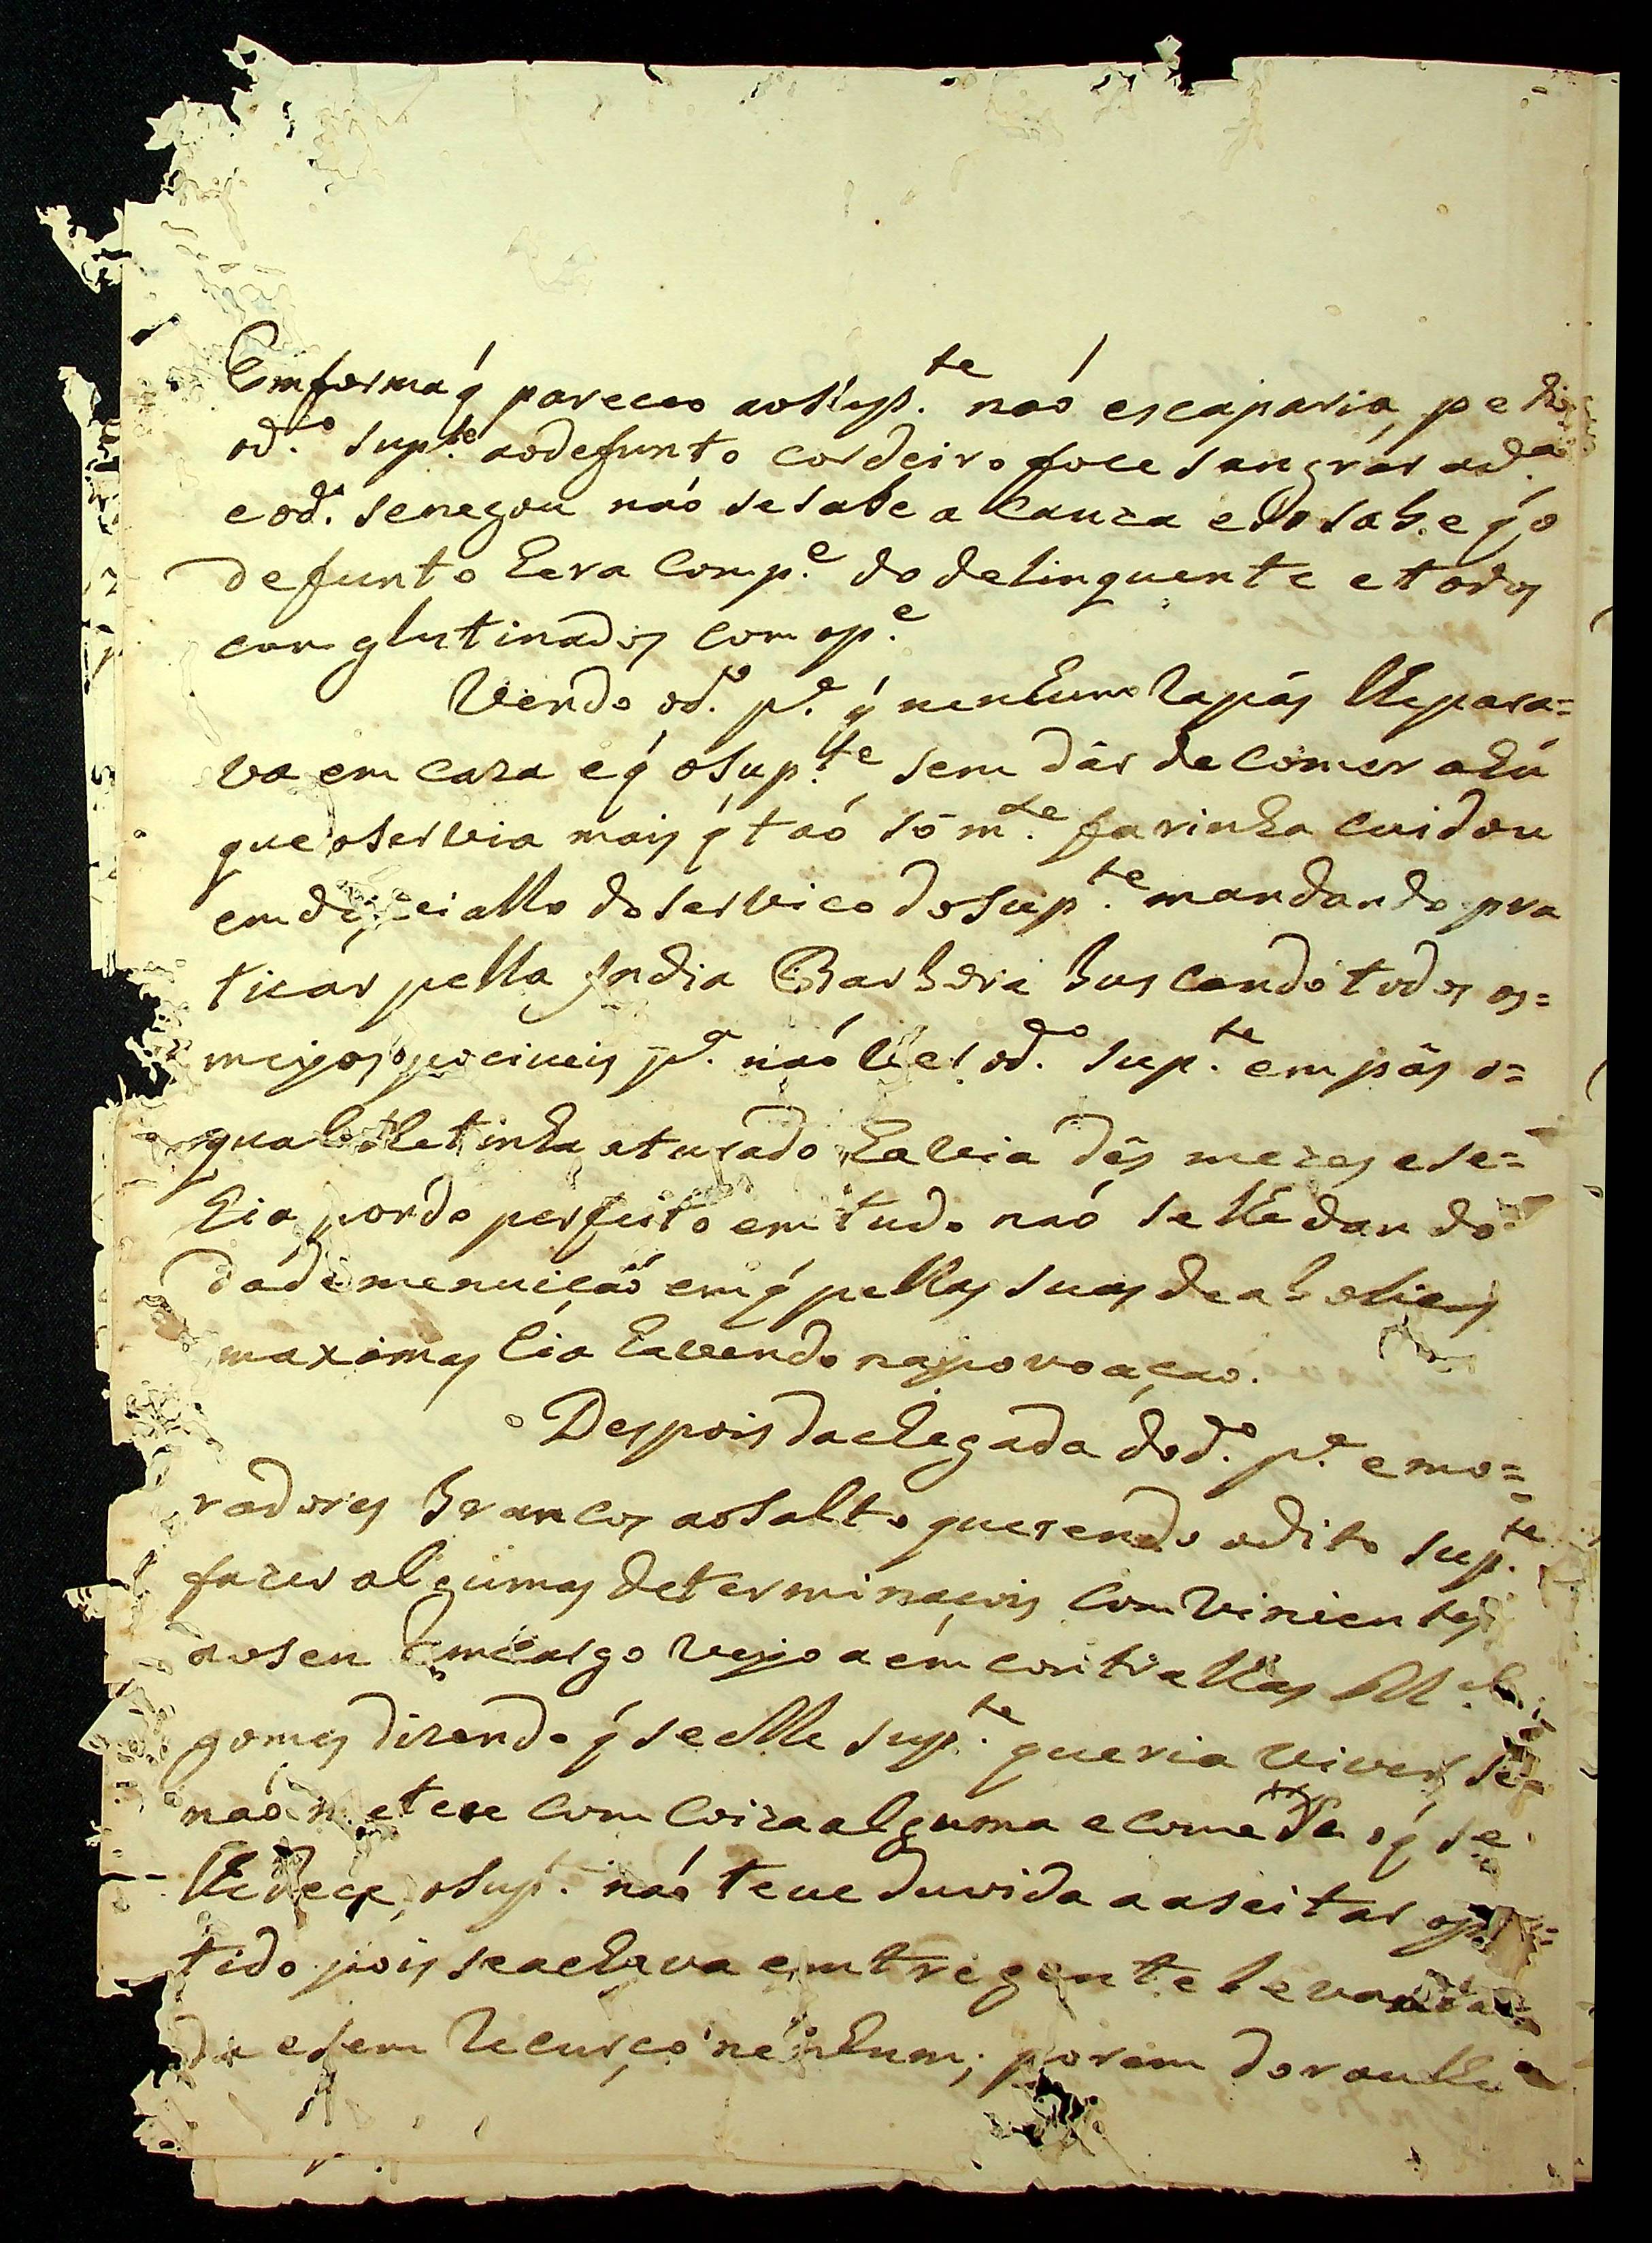 Emforma q̃ pareceo aosup.te naó escaparia, pedio
od.o sup.te aodefunto cordeiro foce sangrár ad.a
e od.o senegou naó sesabe a cauza e só sabe q̃ o
defunto hera Comp.e do delinquente e todos
comglutinados com op.e
Vendo od.o p.e q̃ nenhum rapás lhepara=
va em caza e q̃ osup.te sem dár decomer ahú
que oservia mais q̃ taó só m.te farinha cuidou
em doservico dosup.te mandando pra
ticár pella India Barbora buscando todos os=
meyos pociveis p.a naó ver od.o sup.te em pás o=
qual lhetinha aturado havia dés mezes ese=
hia pondo perfeito em tudo naó selhe dando
dademenuiçaó emq̃ pellas suas deabolicas
maximas hia havendo napovoaçaó.
Despois dachegada dod.o p.e emo=
radores brancos aosalto querendo odito sup.te
fazer algumas determinaçois comvinientes
aoseu emcargo veyo aemcontrallas M.el
gomes dizendo q̃ seelle sup.te queria viver se=
naó metese com coiza alguma e comese oq̃ se
lhedece, osup.te naó teve duvida aaseitar opar=
tido pois seachava emtregente levanta=
da esem recurço nenhum; porem dorou lhe